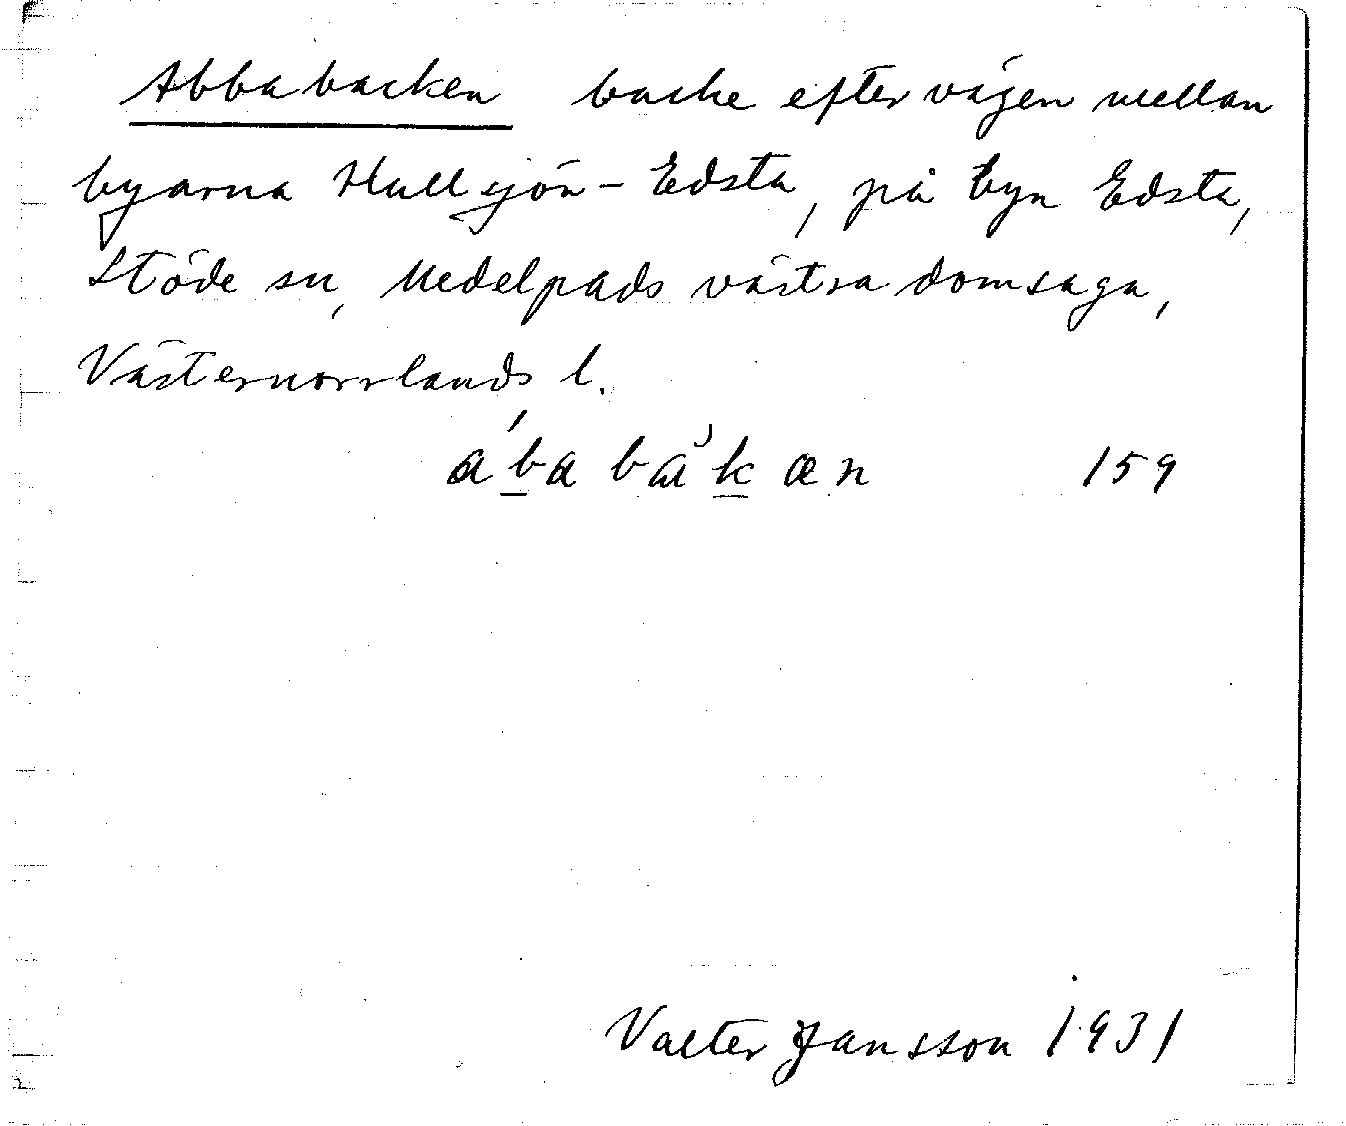 Abbabacken backe efter vägen mellan
byarna Hullsjön - Edsta, på byn Edsta,
Stöde sn, Medelpads västra domsaga,
Västernorrlands l.
159
Valter Jansson 1931